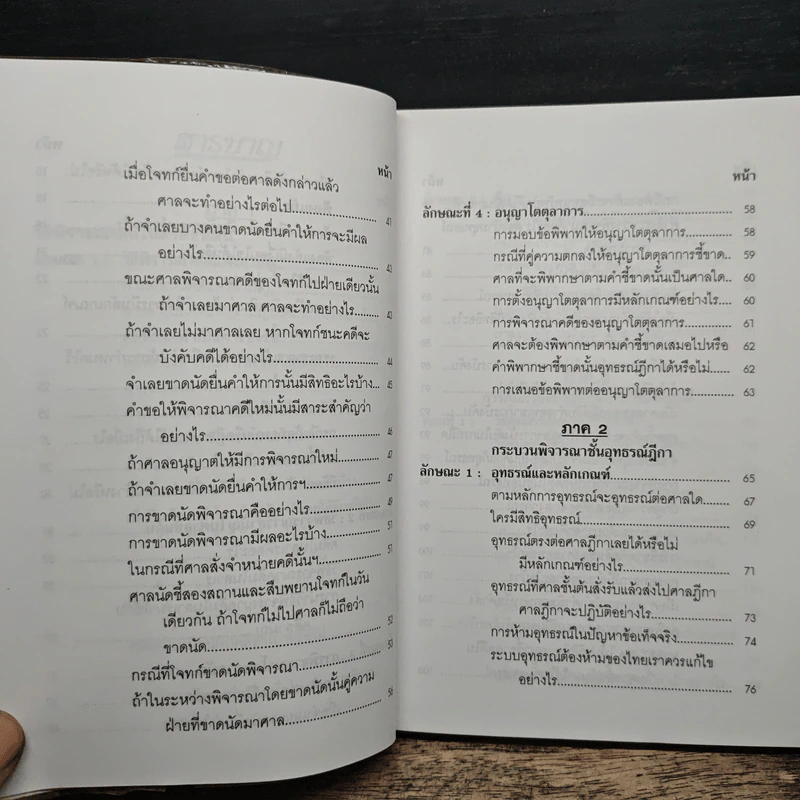 หน้า
เมื่อโจทก์ยื่นคำขอต่อศาลดังกล่าวแล้ว
ศาลจะทำอย่างไรต่อไป.................... 41
ถ้าจำเลยบางคนขาดนัดยื่นคำให้การจะมีผล
อย่างไร.................... 42
ขณะศาลพิจารณาคดีของโจทก์ไปฝ่ายเดียวนั้น
ถ้าจำเลยมาศาล ศาลจะทำอย่างไร.......... 43
ถ้าจำเลยไม่มาศาลเลย หากโจทก์ชนะคดีจะ
บังคับคดีได้อย่างไร.................... 44
จำเลยขาดนัดยื่นคำให้การนั้นมีสิทธิอะไรบ้าง... 45
คำขอให้พิจารณาคดีใหม่นั้นมีสาระสำคัญว่า
อย่างไร.................... 46
ถ้าศาลอนุญาตให้มีการพิจารณาใหม่.......... 47
ถ้าจำเลยขาดนัดยื่นคำให้การฯ.................... 47
การขาดนัดพิจารณาคืออย่างไร.................... 49
การขาดนัดพิจารณามีผลอะไรบ้าง.................... 51
ในกรณีที่ศาลสั่งจำหน่ายคดีนั้นฯ.................... 51
ศาลนัดชี้สองสถานและสืบพยานโจทก์ในวัน
เดียวกัน ถ้าโจทก์ไม่ไปศาลก็ไม่ถือว่า
ขาดนัด.................... 52
กรณีที่โจทก์ขาดนัดพิจารณา.................... 53
ถ้าในระหว่างพิจารณาโดยขาดนัดนั้นคู่ความ
ฝ่ายที่ขาดนัดมาศาล.................... 56
หน้า
ลักษณะที่ 4 : อนุญาโตตุลาการ.................... 58
การมอบข้อพิพาทให้อนุญาโตตุลาการ.......... 58
กรณีที่คู่ความตกลงให้อนุญาโตตุลาการชี้ขาด.. 59
ศาลที่จะพิพากษาตามคำชี้ขาดนั้นเป็นศาลใด.. 60
การตั้งอนุญาโตตุลาการมีหลักเกณฑ์อย่างไร.... 60
การพิจารณาคดีของอนุญาโตตุลาการ.......... 61
ศาลจะต้องพิพากษาตามคำชี้ขาดเสมอไปหรือ 62
คำพิพากษาชี้ขาดนั้นอุทธรณ์ฎีกาได้หรือไม่...... 62
การเสนอข้อพิพาทต่ออนุญาโตตุลาการ.......... 63
ภาค 2
กระบวนพิจารณาชั้นอุทธรณ์ฎีกา
ลักษณะ 1 : อุทธรณ์และหลักเกณฑ์.................... 65
ตามหลักการอุทธรณ์จะอุทธรณ์ต่อศาลใด....... 67
ใครมีสิทธิอุทธรณ์.................... 69
อุทธรณ์ตรงต่อศาลฎีกาเลยได้หรือไม่
มีหลักเกณฑ์อย่างไร.................... 71
อุทธรณ์ที่ศาลชั้นต้นสั่งรับแล้วส่งไปศาลฎีกา
ศาลฎีกาจะปฏิบัติอย่างไร.................... 73
การห้ามอุทธรณ์ในปัญหาข้อเท็จจริง.......... 74
ระบบอุทธรณ์ต้องห้ามของไทยเราควรแก้ไข
อย่างไร.................... 76